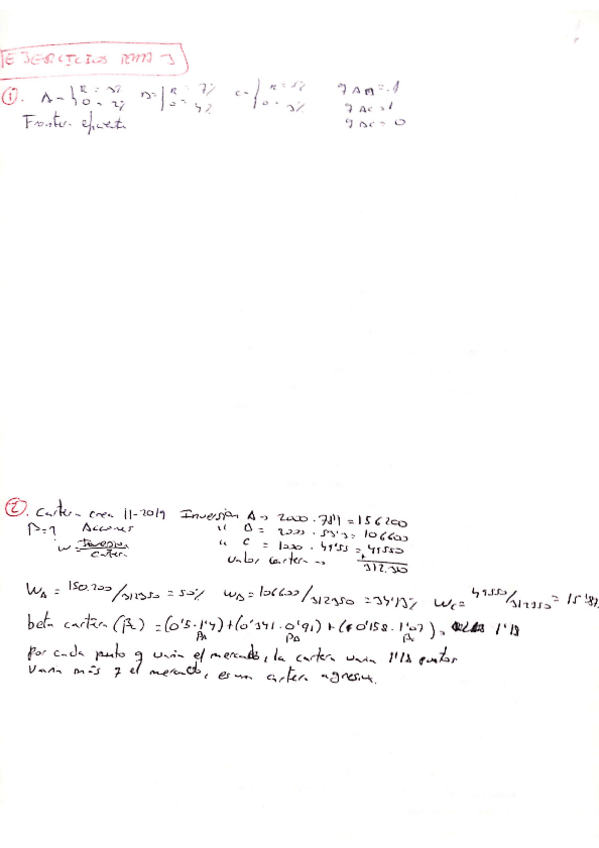 EJERCICIOS TEMA 3
①. A → R = 3% σ = 2% B = R = 7% σ = 4% C → R = 5% σ = 3% ρ AB = -1
ρ AC = 1
Frontera eficiente ρ BC = 0
②. Cartera crea 11-2019 Inversion A → 2000 · 78'1 = 156200
β = ? Acciones " B = 2000 · 53'3 = 106600
w = Inversion / Cartera " C = 1000 · 49'55 = 49550
valor cartera → 312.350
WA = 150.200/312350 = 50% WB = 106600/312350 = 34'13% WC = 49550/312350 = 15'8%
beta cartera (βc) = (0'5 · 1'4) + (0'341 · 0'91) + (0'158 · 1'07) = 1'18
βA βB βC
por cada punto q varia el mercado, la cartera varia 1'18 puntos
Varia más q el mercado, es una cartera agresiva.